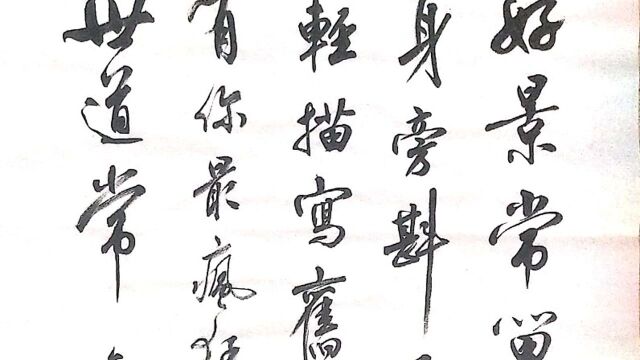 好景常留
身旁斟
輕描寫舊
有你最瘋狂
世道常